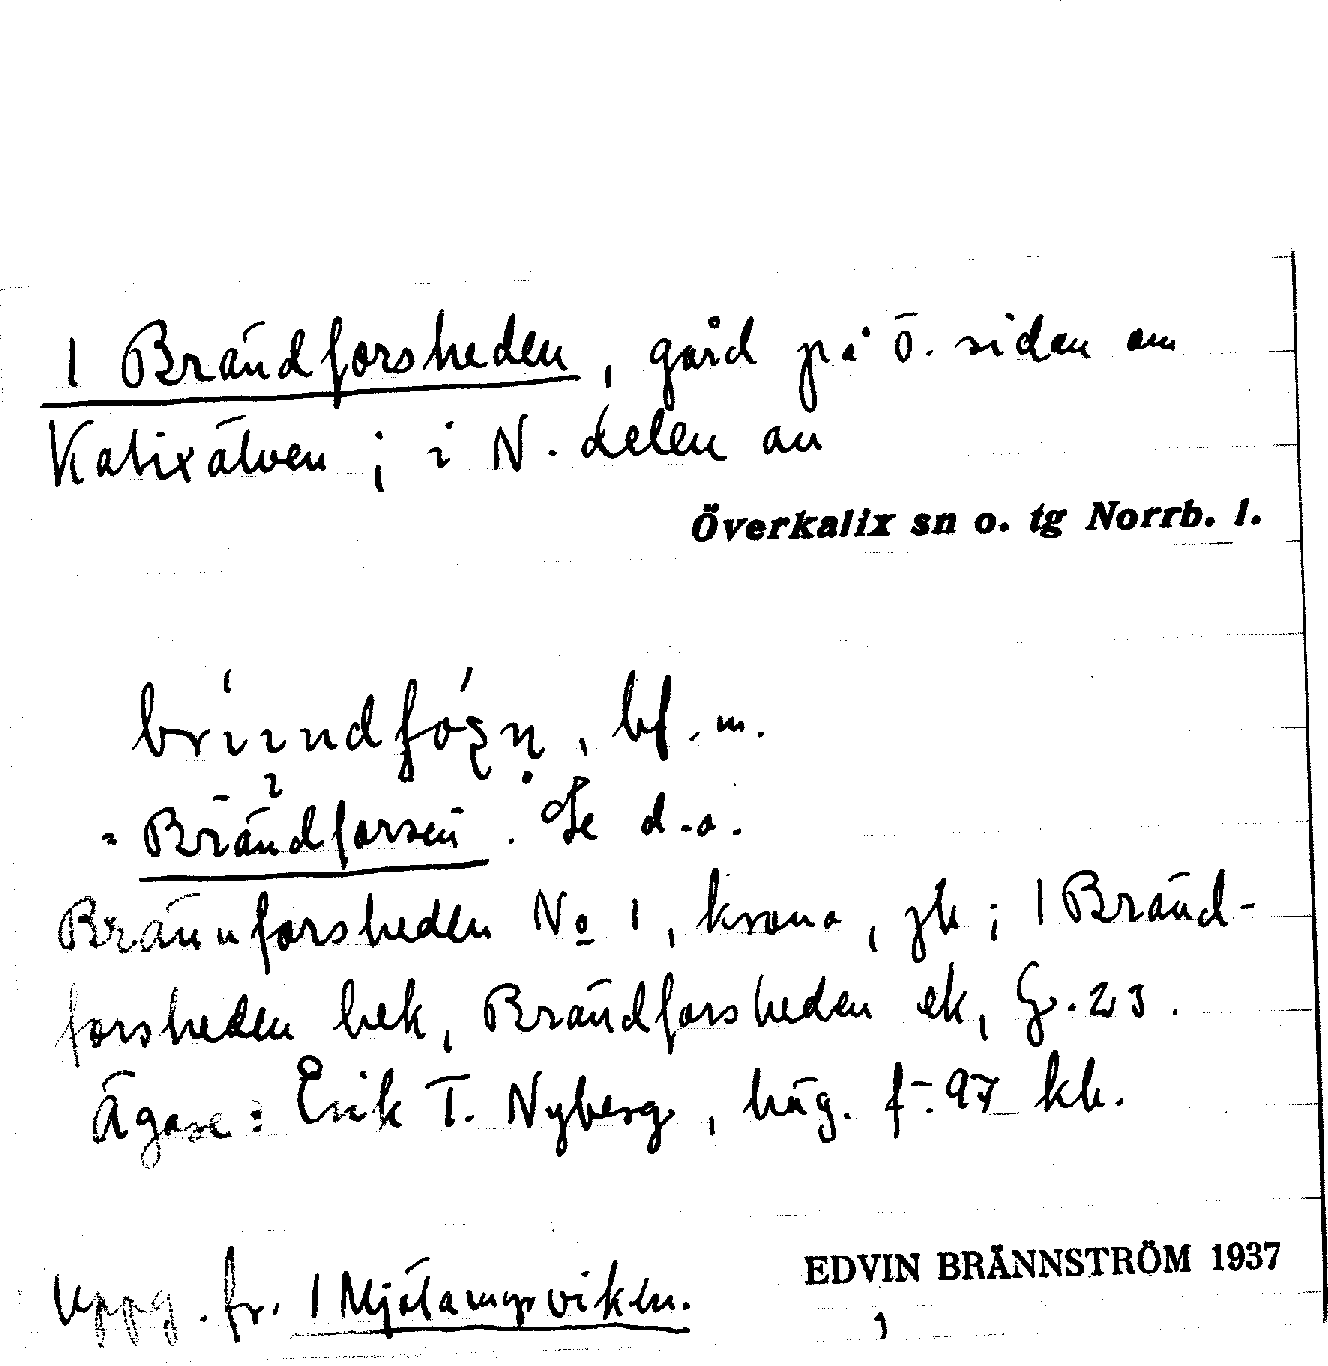 1 Brändforsheden, gård på ö. sidan om
Kalixälven; i N. delen av
Överkalix sn o. tg Norrb. l.
bf. m.
= Brändforsen. Se d.o.
Brännforsheden No 1, krono, jk; 1 Bränd-
forsheden hek, Brändforsheden ek, G. 23.
Ägare: Erik T. Nyberg, häg. f. 97 kb.
Uppg. fr. 1
EDVIN BRÄNNSTRÖM 1937
1